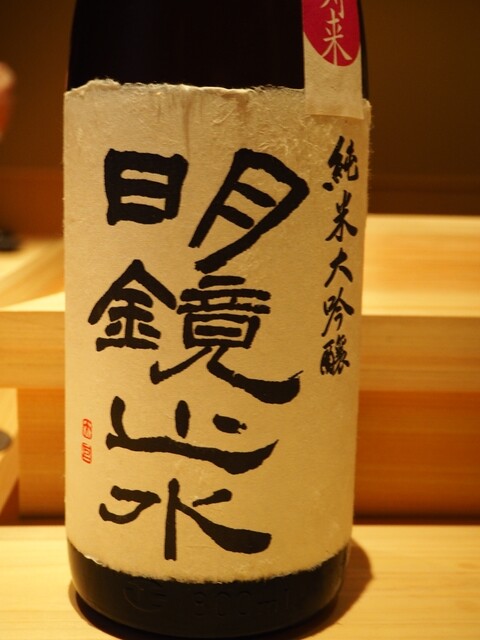 来
純米大吟醸
明鏡止水
900ml